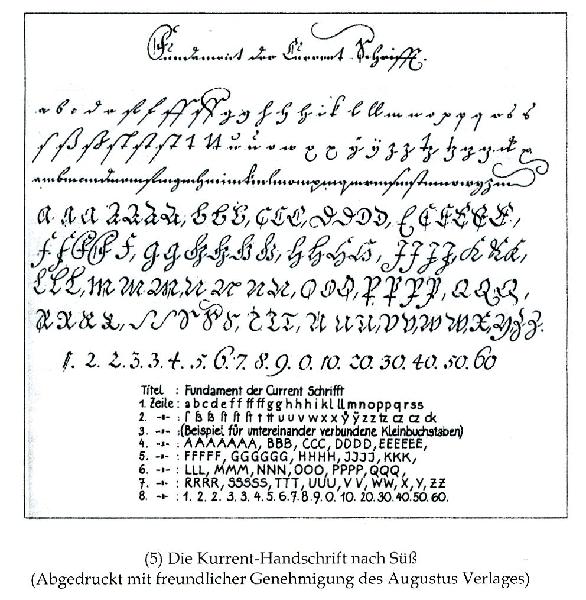 Fundament der Current Schrifft.
a b c d e f ff fff ff g g h h h h i k l ll m n o p p q r s s
ſ ß ß ſt ſt ſt ſt t tt u u v w x x ÿ ÿ z z tz cz cz ck
A A A A A A A, B B B, C C C, D D D D, E E E E E E,
F F F F F, G G G G G G, H H H H, J J J J, K K K,
L L L, M M M, N N N, O O O, P P P P, Q Q Q,
R R R R, S S S S S, T T T, U U U, V V, W W, X, Y, Z Z
1. 2. 2. 3. 3. 4. 5. 6. 7. 8. 9. 0. 10. 20. 30. 40. 50. 60
Titel : Fundament der Current Schrifft
1. Zeile : a b c d e f ff fff ff g g h h h h i k l ll m n o p p q r s s
2. -"- : ſ ß ß ſt ſt ſt ſt t tt u u v w x x ÿ ÿ z z tz cz cz ck
3. -"- : (Beispiel für untereinander verbundene Kleinbuchstaben)
4. -"- : AAAAAAA, BBB, CCC, DDDD, EEEEEE,
5. -"- : FFFFF, GGGGGG, HHHH, JJJJ, KKK,
6. -"- : LLL, MMM, NNN, OOO, PPPP, QQQ,
7. -"- : RRRR, SSSSS, TTT, UUU, VV, WW, X, Y, ZZ
8. -"- : 1. 2. 2. 3. 3. 4. 5. 6. 7. 8. 9. 0. 10. 20. 30. 40. 50. 60.
(5) Die Kurrent-Handschrift nach Süß
(Abgedruckt mit freundlicher Genehmigung des Augustus Verlages)